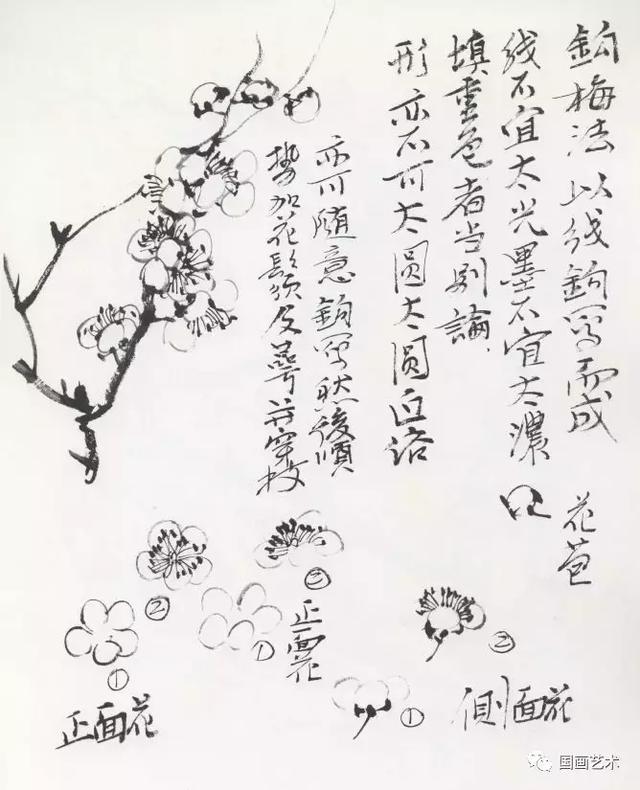 鈎梅法以线鈎写而成
线不宜太光墨不宜太濃
填重色者当别論
形亦不可太圆太圆近俗
亦可随意鈎写然後順
势加花鬚及萼并穿枝
花苞
②
③
①
正面花
②
①
正面花
①
側面花
国画艺术